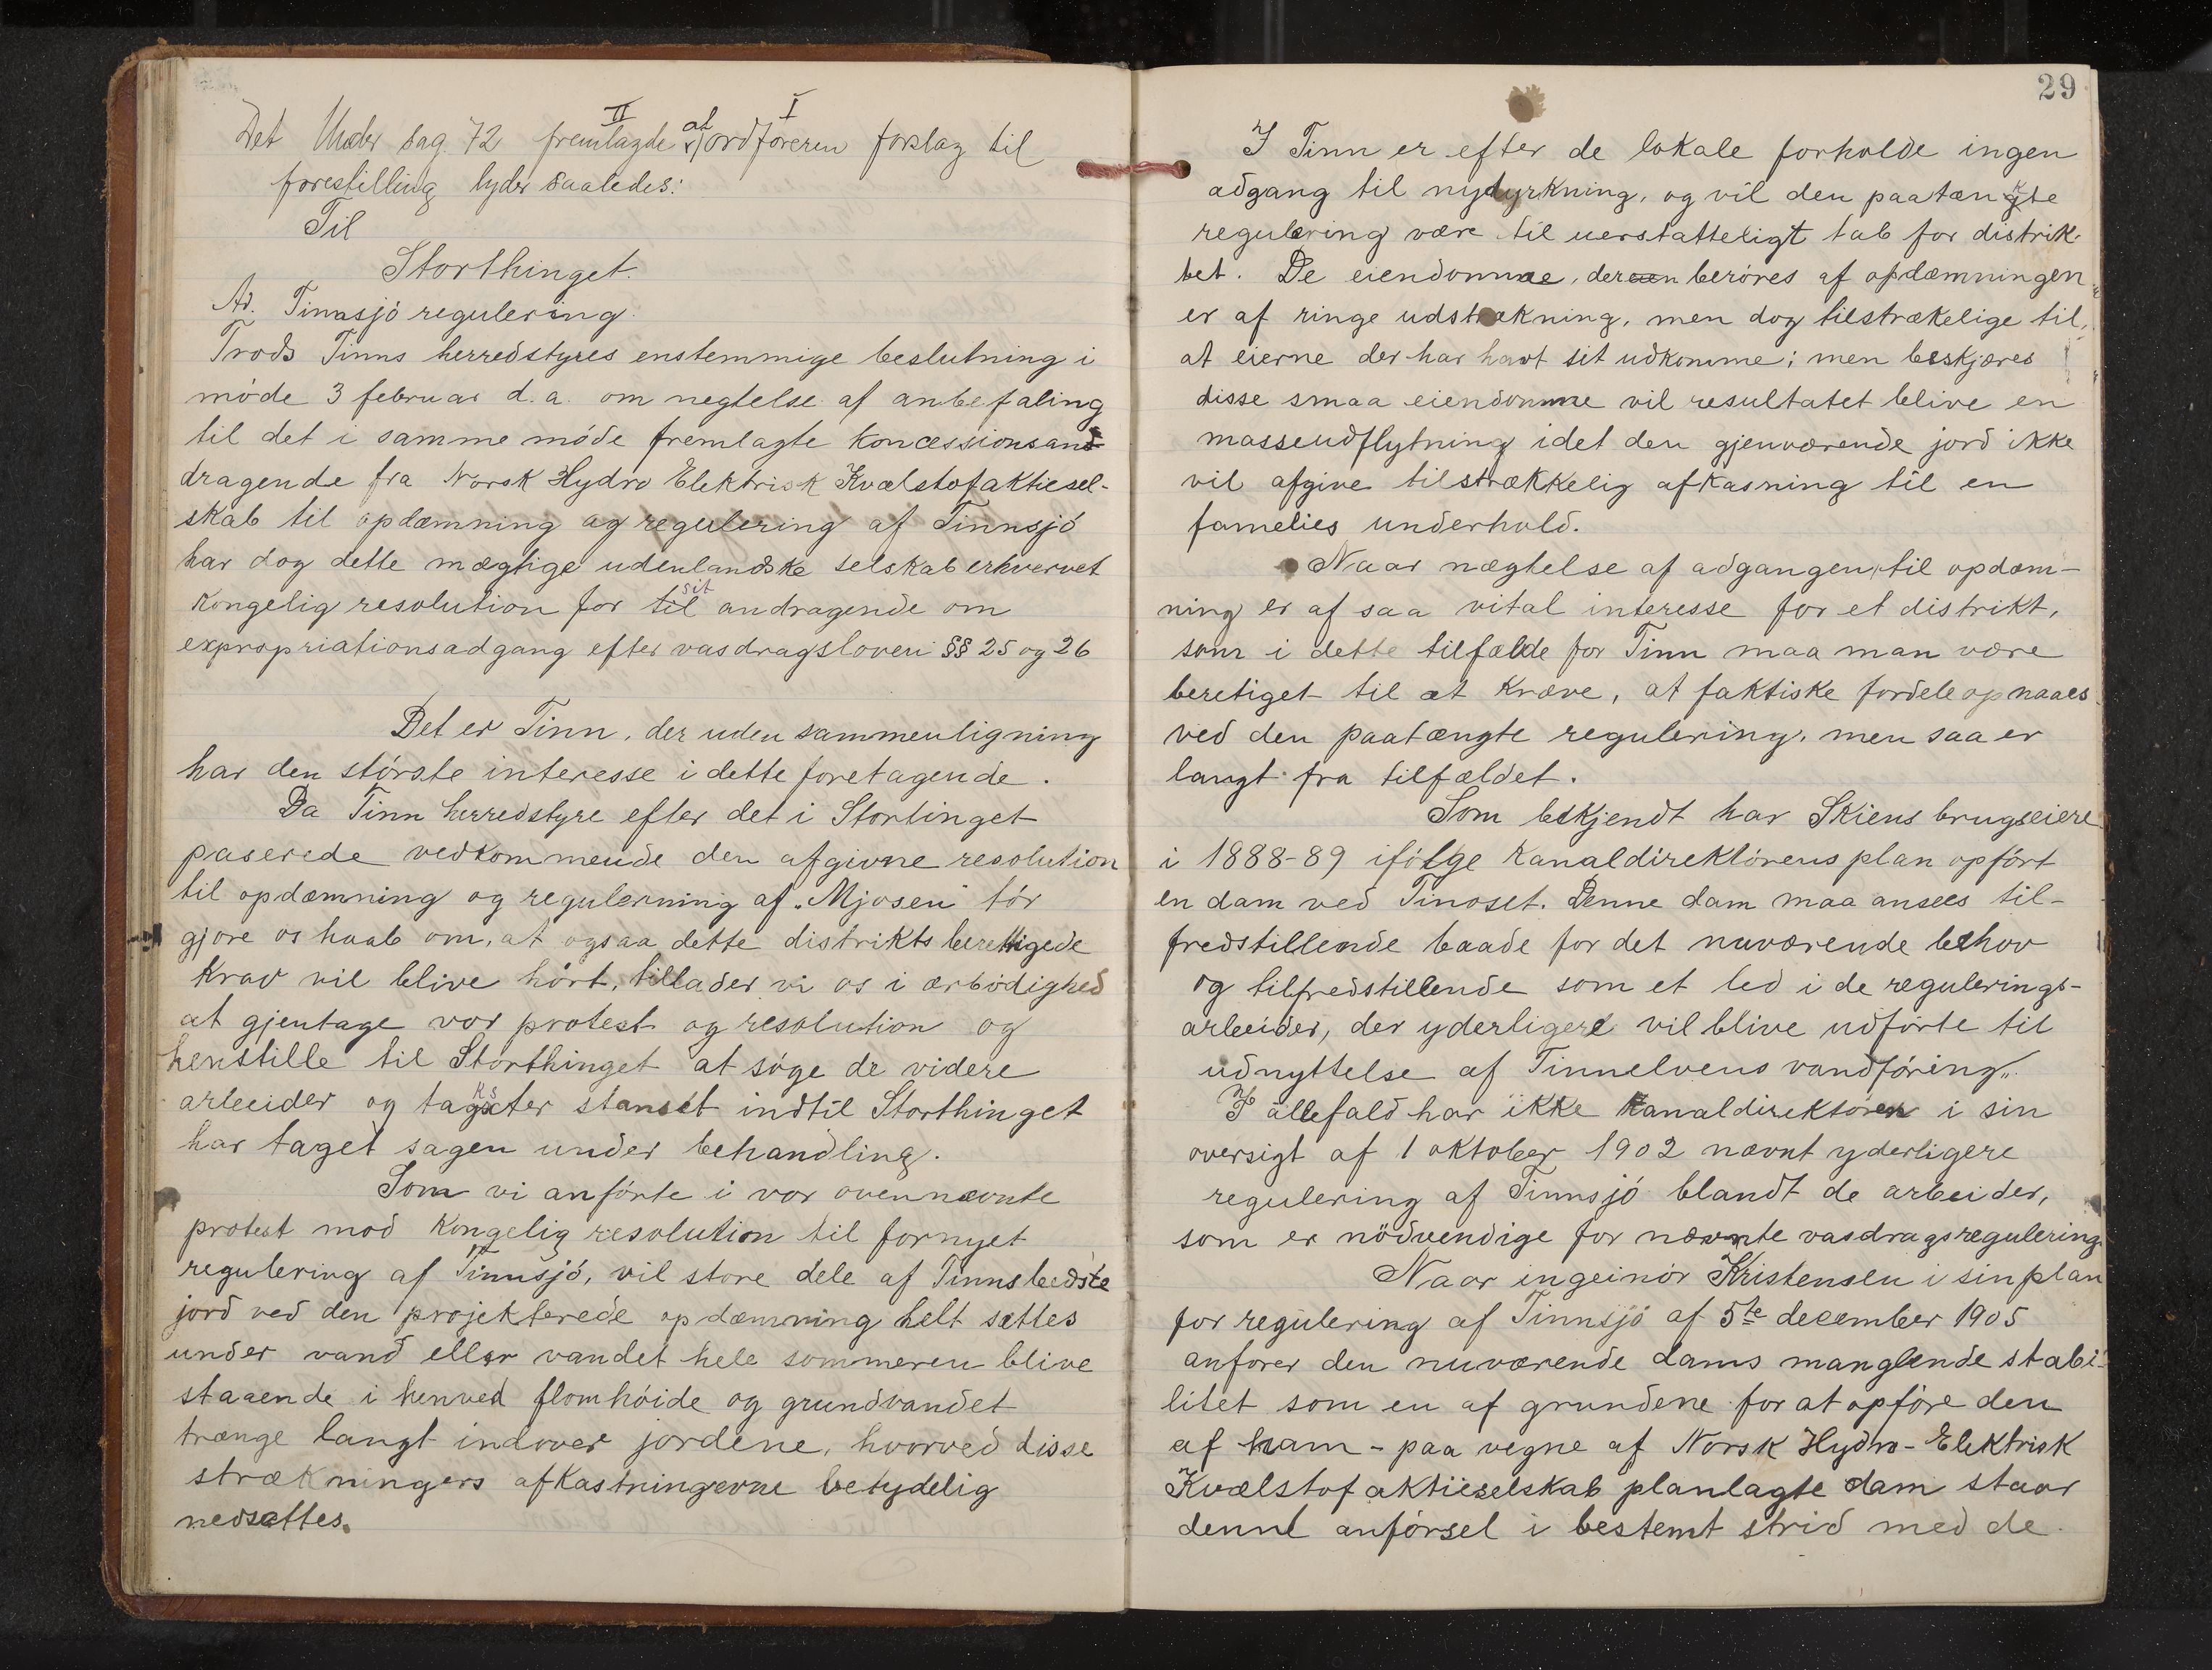 Det Under sag 72 fremlagde II af ordføreren I forslag til
forestilling lyder saaledes:
Til
Storthinget.
Ad. Tinnsjö regulering.
Trods Tinns herredstyres enstemmige beslutning i
möde 3 februar d.a. om negtelse af anbefaling
til det i samme möde fremlagte koncessionsand
dragende fra Norsk Hydro Elektrisk Kvælstofaktiesel-
skab til opdæmning og regulering af Tinnsjö
har dog dette mægtige udenlandske selskab erhvervet
kongelig resolution for til sit andragende om
expropriationsadgang efter vasdragsloven §§ 25 og 26
Det er Tinn, der uden sammenligning
har den störste interesse i dette foretagende.
Da Tinn herredstyre efter det i Stortinget
paserede vedkommende den afgivne resolution
til opdæmning og regulerning af "Mjøsen" tör
gjøre os haab om, at ogsaa dette distrikts berettigede
krav vil blive hört, tillader vi os i ærbödighed
at gjentage vor protest og resolution og
henstille til Storthinget at söge de videre
arbeider og takster stanset indtil Storthinget
har taget sagen under behandling.
Som vi anförte i vor ovennævnte
protest mod kongelig resolution til fornyet
regulering af Tinnsjö, vil store dele af Tinns bedste
jord ved den projekterede opdæmning helt sættes
under vand eller vandet hele sommeren blive
staaende i henved flomhöide og grundvandet
trænge langt indover jordene, hvorved disse
strækningers afkastningevne betydelig
nedsættes.
29
I Tinn er efter de lokale forholde ingen
adgang til nydyrkning, og vil den paatænkte
regulering være til uerstatteligt tab for distrik-
tet. De eiendomme, der berøres af opdæmningen
er af ringe udstrækning, men dog tilstrækelige til,
at eierne der har havt sit udkomme; men beskjæres
disse smaa eiendomme vil resultatet blive en
masseudflytning idet den gjenværende jord ikke
vil afgive tilstrækkelig afkasning til en
famelies underhold.
Naar nægtelse af adgangen til opdæm-
ning er af saa vital interesse for et distrikt,
som i dette tilfælde for Tinn maa man være
beretiget til at kræve, at faktiske fordele opnaaes
ved den paatængte regulering, men saa er
langt fra tilfældet.
Som bekjendt har Skiens brugseiere
i 1888-89 ifölge kanaldirektörens plan opfört
en dam ved Tinoset. Denne dam maa ansees til-
fredstillende baade for det nuværende behov
og tilfredstillende som et led i de regulerings-
arbeider, der yderligere vil blive udförte til
udnyttelse af Tinnelvens vandföring".
I allefald har ikke kanaldirektören i sin
oversigt af 1 oktober 1902 nævnt yderligere
regulering af Tinnsjö blandt de arbeider,
som er nödvendige for nævnte vasdragsregulering
Naar ingeinör Kristensen i sin plan
for regulering af Tinnsjö af 5te december 1905
anfører den nuværende dams manglende stabi-
litet som en af grundene for at opföre den
af ham - paa vegne af Norsk Hydro-Elektrisk
Kvælstof aktieselskab planlagte dam staar
denne anförsel i bestemt strid med de